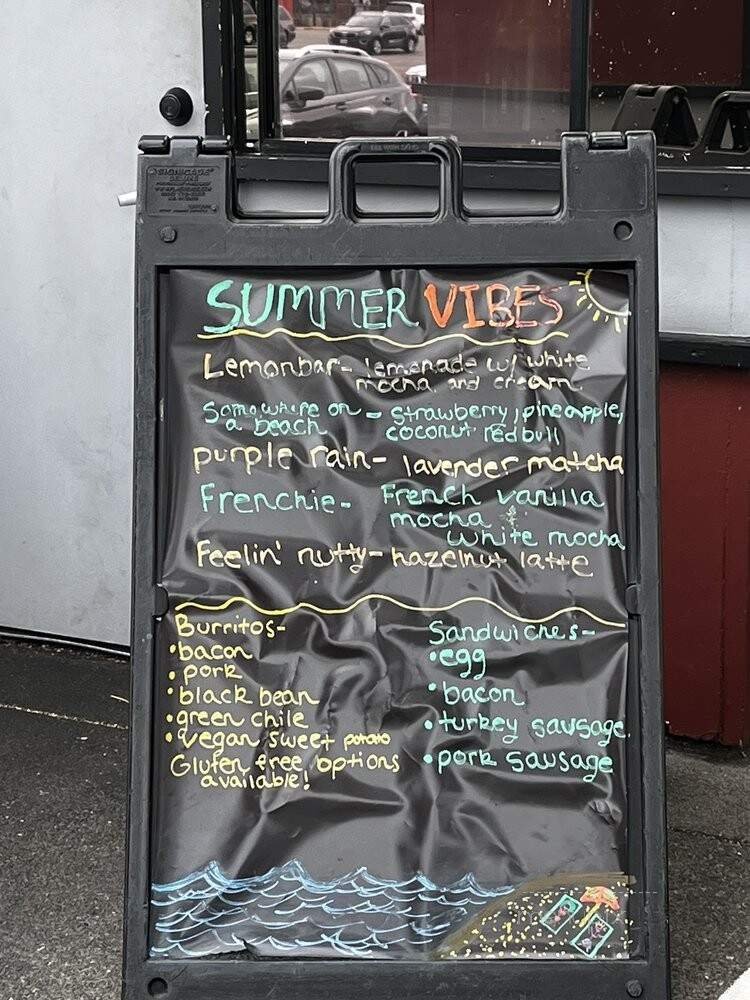 SIGNICADE
DELUXE
SUMMER VIBES
Lemonbar- lemenade w/ white
mocha and cream
Somewhere on - strawberry, pineapple,
a beach coconut redbull
purple rain- lavender matcha
Frenchie- French vanilla
mocha +
white mocha
Feelin' nutty- hazelnut latte
Burritos-
•bacon
•pork
•black bean
•green chile
•vegan sweet potato
Gluten free options
available!
Sandwiches-
•egg
•bacon
•turkey sausage
•pork sausage